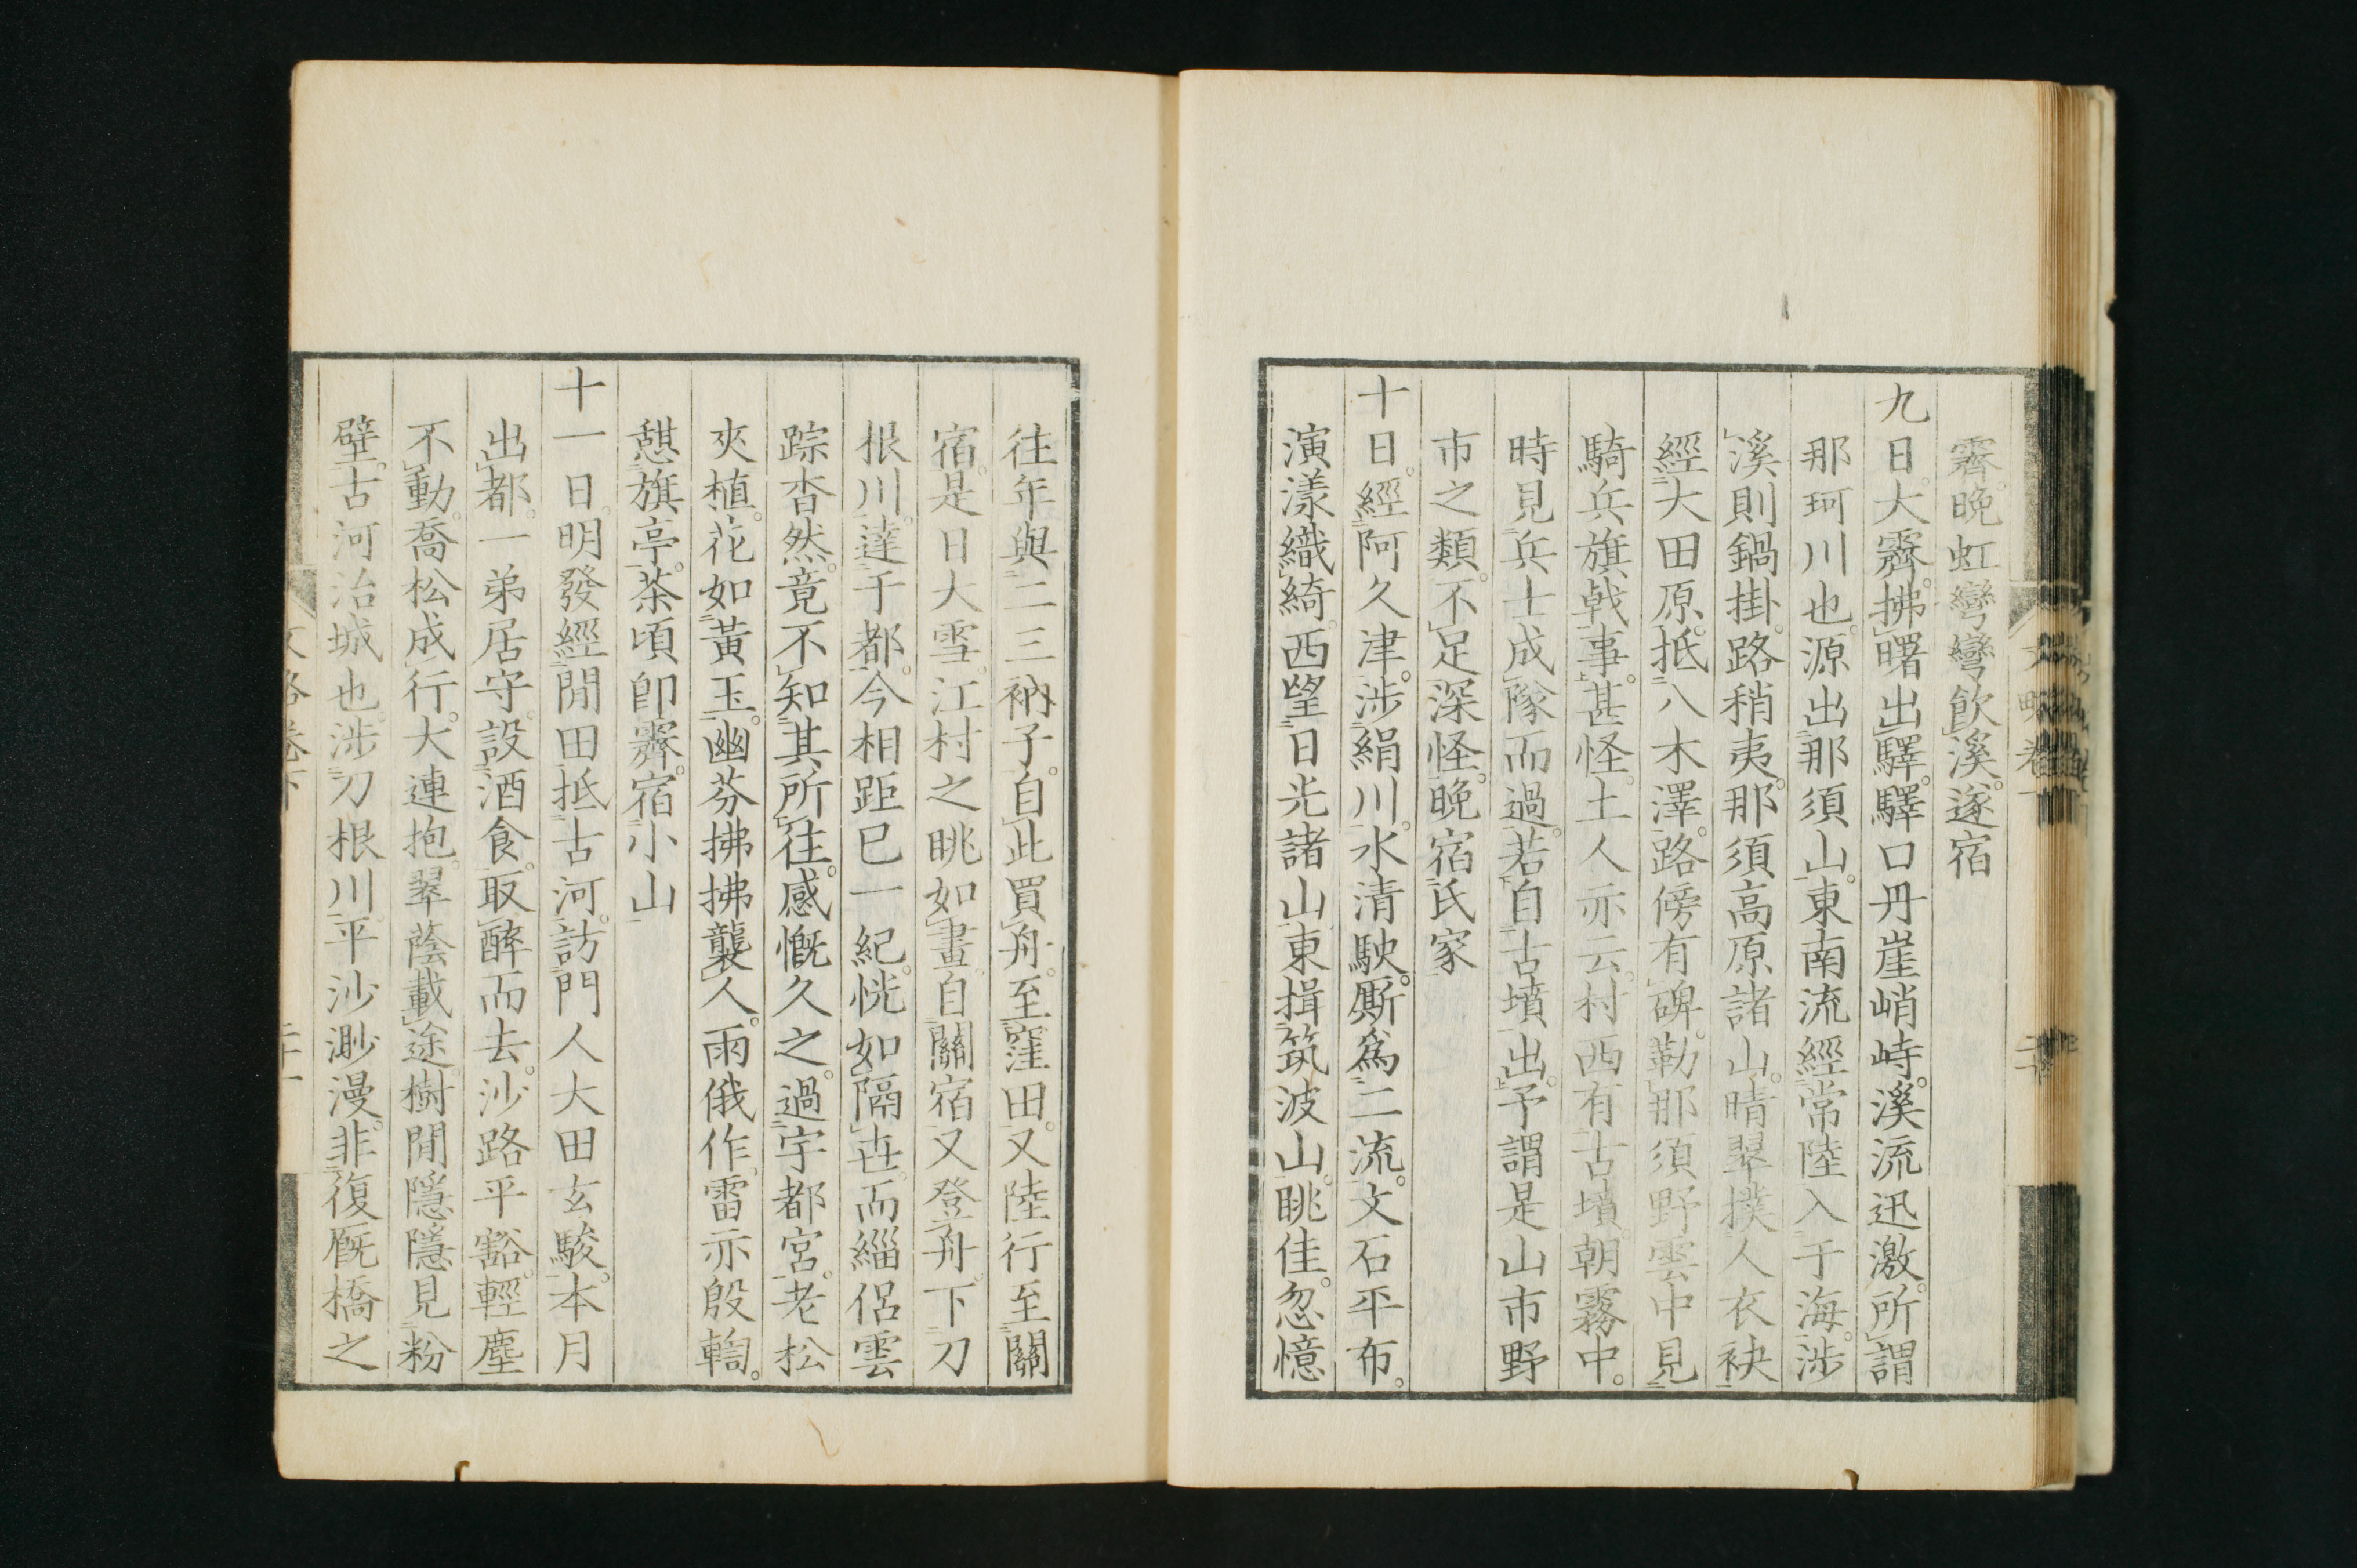 霽。晩虹彎彎飲溪。遂宿
九日。大霽。拂曙出驛。驛口丹崖峭峙。溪流迅激。所謂
那珂川也。源出那須山。東南流經常陸入于海。涉
溪則鍋掛。路稍夷。那須高原諸山。晴翠撲人衣袂
經大田原。抵八木澤。路傍有碑。勒那須野雲中見
騎兵旗戟事。甚怪。土人亦云。村西有古墳。朝霧中。
時見兵士成隊而過。若自古墳出。予謂是山市野
市之類。不足深怪。晩宿氏家
十日。經阿久津。涉絹川。水清駛。厮爲二流。文石平布。
演漾織綺。西望日光諸山。東揖筑波山。眺佳。忽憶
往年與二三衲子。自此買舟。至窪田。又陸行至關
宿。是日大雪。江村之眺如畫。自關宿又登舟。下刀
根川。達于都。今相距已一紀。恍如隔世。而緇侶雲
踪杳然。竟不知其所往。感慨久之。過宇都宮。老松
夾植。花如黃玉。幽芬拂拂襲人。雨俄作。雷亦殷輷。
憇旗亭。茶頃卽霽。宿小山
十一日。明發經間田抵古河。訪門人大田玄駿。本月
出都。一弟居守。設酒食。取醉而去。沙路平豁。輕塵
不動。喬松成行。大連抱。翠蔭載途。樹間隱隱見粉
壁。古河治城也。涉刀根川。平沙渺漫。非復厩橋之